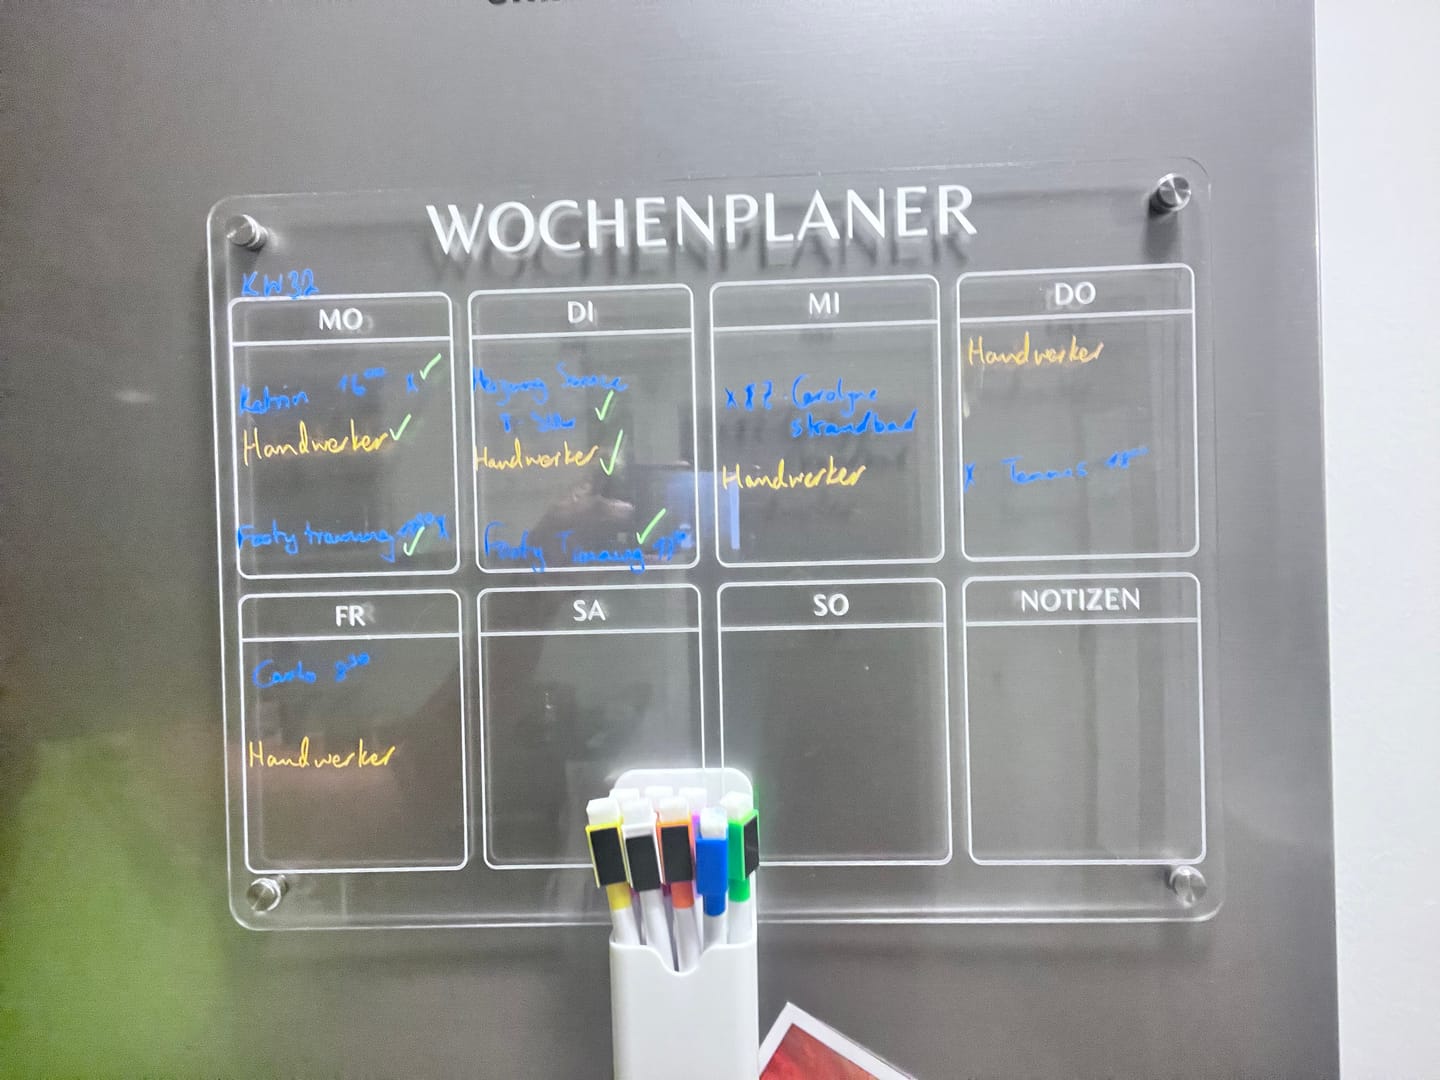 WOCHENPLANER
KW32
MO
Katrin 16⁰⁰ x ✓
Handwerker ✓
Footy training x ✓
DI
✓
Handwerker ✓
Footy Training ✓
MI
Carolyne
strandbad
Handwerker
DO
Handwerker
x Tennis 18⁰⁰
FR
8³⁰
Handwerker
SA
SO
NOTIZEN